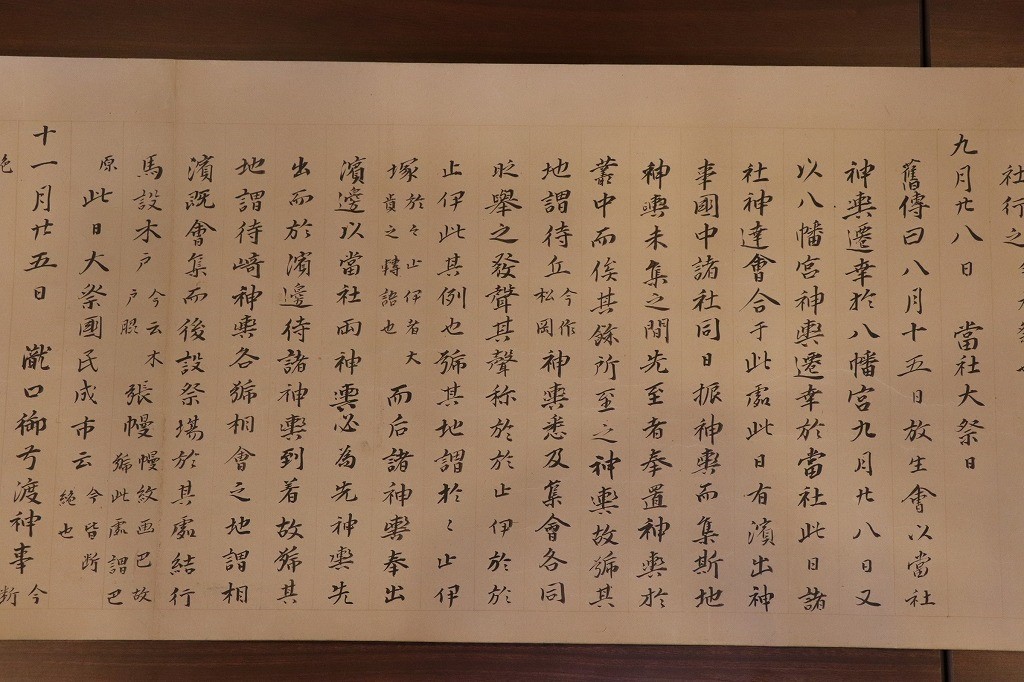 社行之
九月廿八日 當社大祭日
舊傳曰八月十五日放生會以當社
神輿遷幸於八幡宮九月廿八日又
以八幡宮神輿遷幸於當社此日諸
社神達會合于此處此日有濱出神
事國中諸社同日振神輿而集斯地
神輿未集之間先至者奉置神輿於
叢中而俟其餘所至之神輿故號其
地謂待丘今作松岡神輿悉及集會各同
止伊此其例也號其地謂於々止伊
塚於々止伊者大貴之轉語也而后諸神輿奉出
濱邊以當社両神輿必為先神輿先
出而於濱邊待諸神輿到着故號其
地謂待﨑神輿各號相會之地謂相
濱既會集而後設祭場於其處結行
馬設木戸今云木戸張幔幔紋画巴故號此處謂巴
原此日大祭國民成市云今皆断絶也
十一月廿五日 瀧口御弓渡神事今断
絶